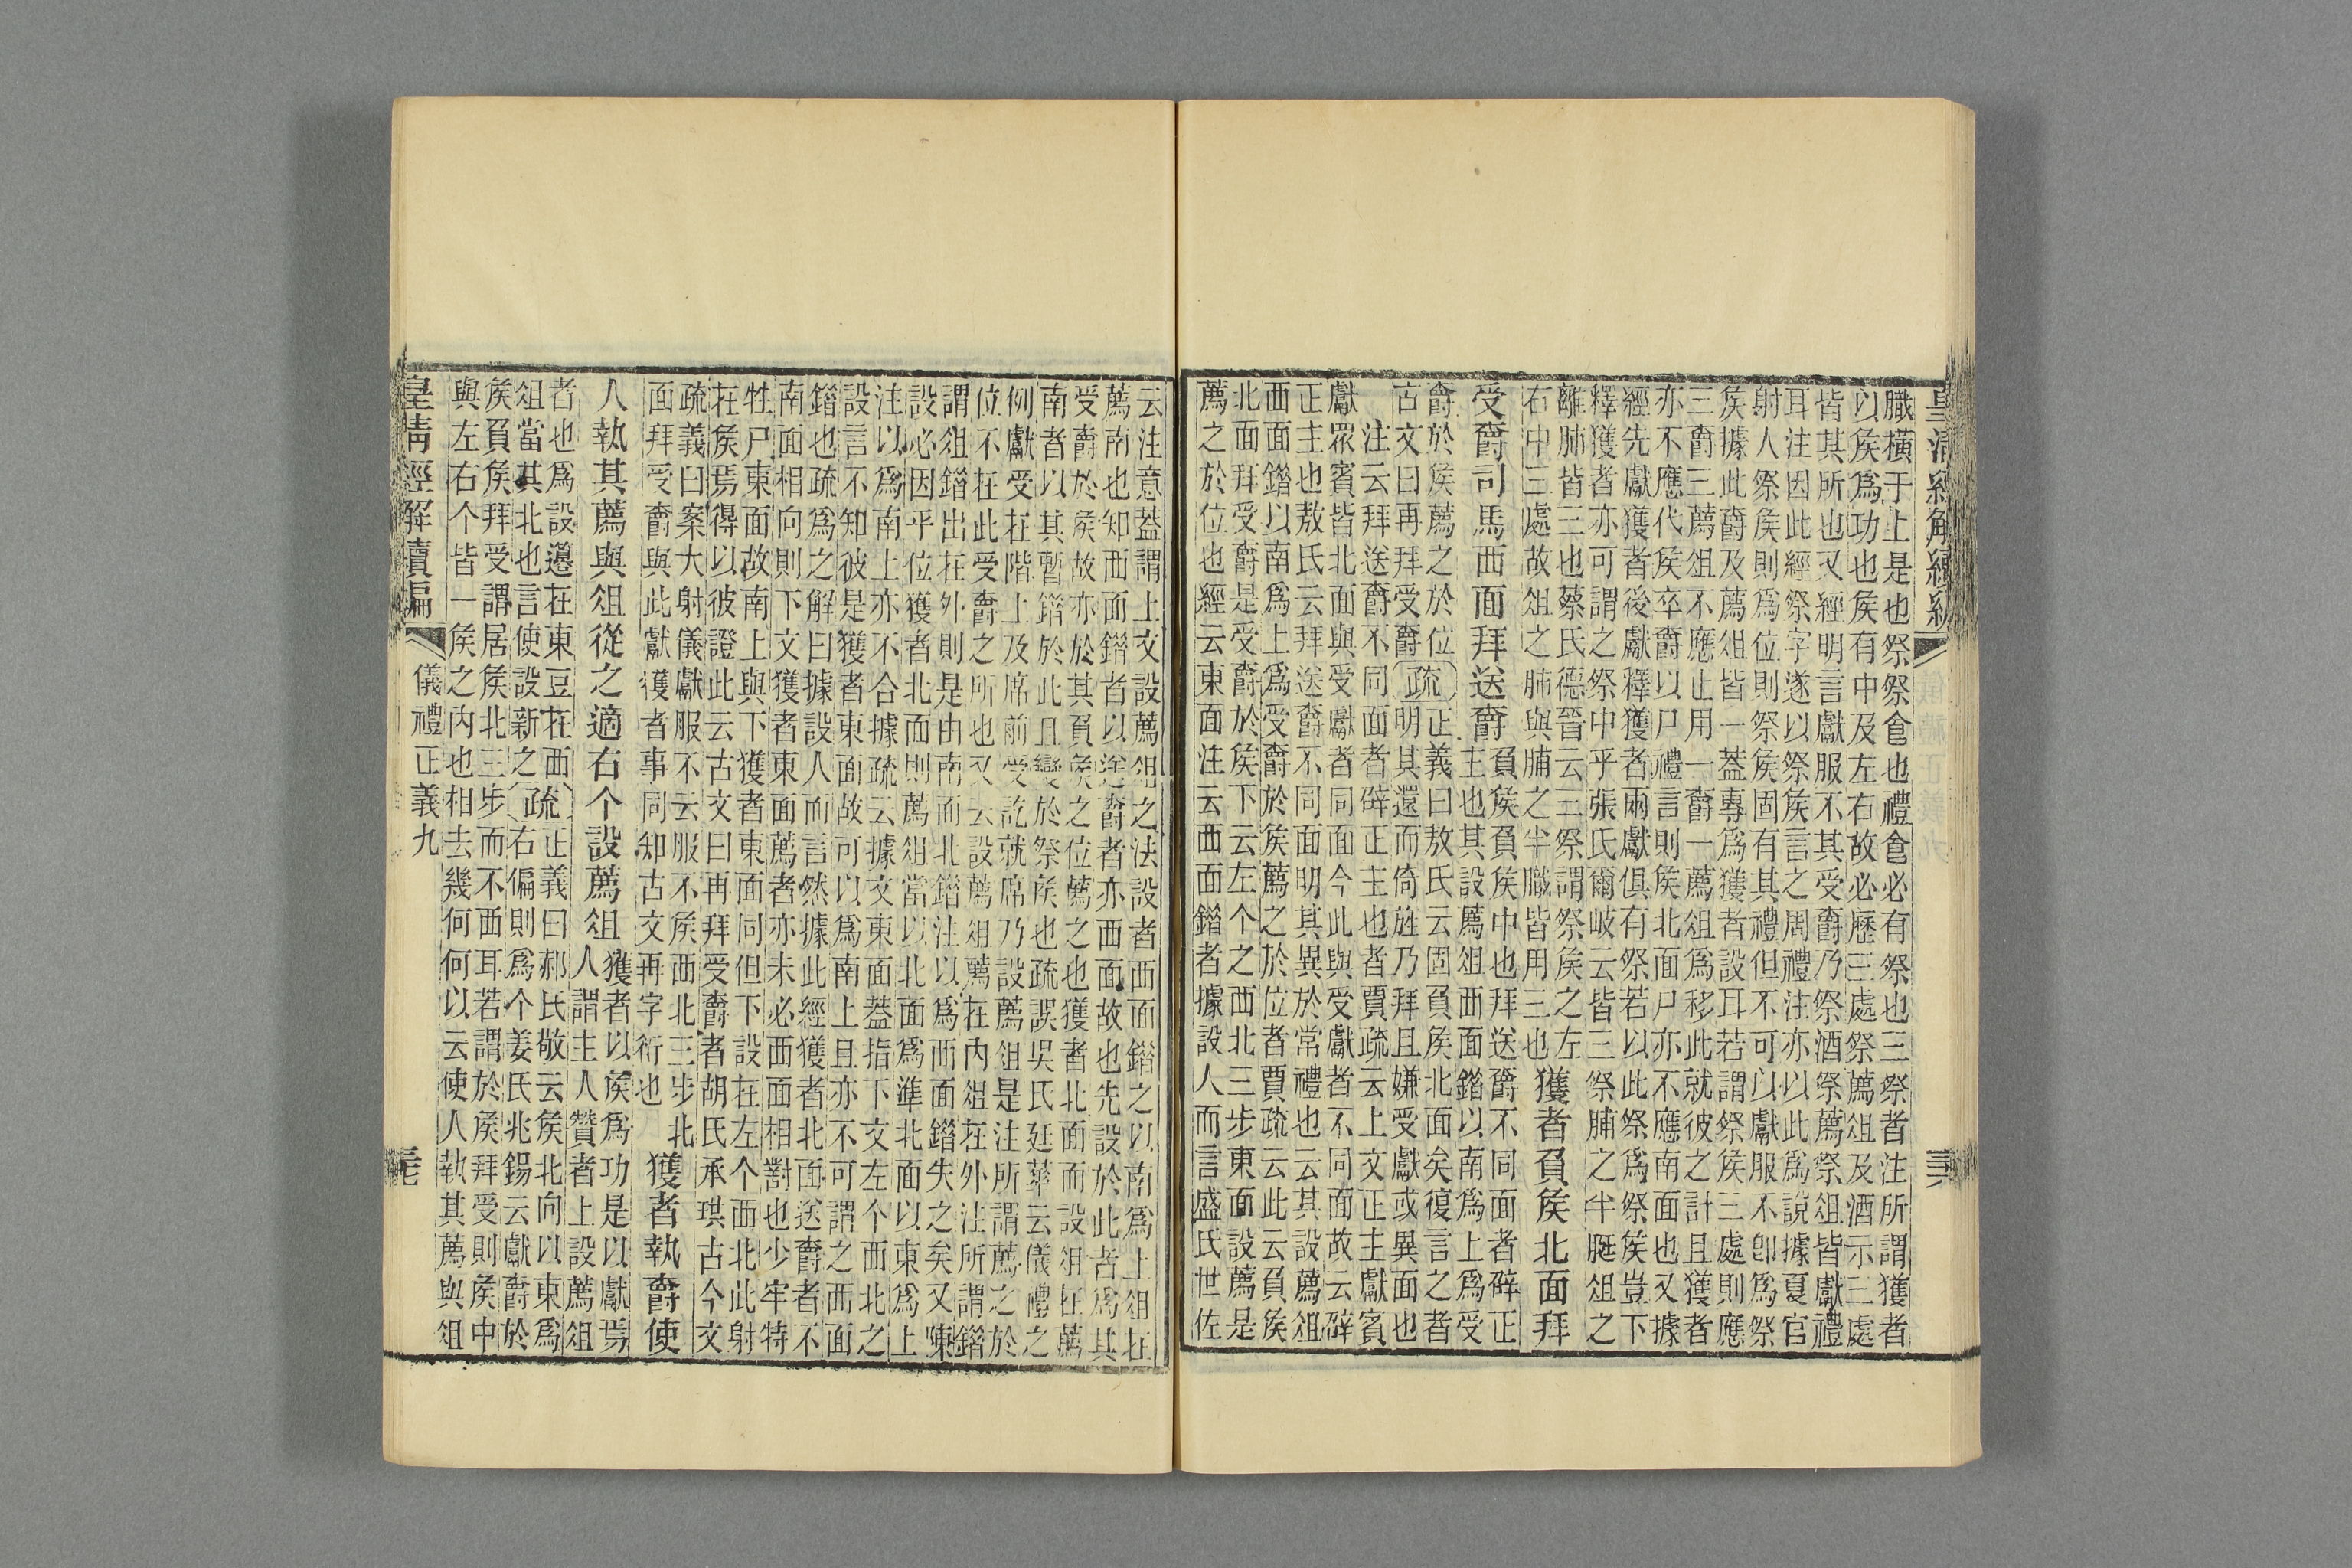 皇清經解續編
臘橫于上是也祭祭㑹也禮㑹必有祭也三祭者注所謂獲者
以矦爲功也矦有中及左右故必歷三處祭薦俎及酒示三處
皆其所也又經明言獻服不其受爵乃祭酒祭薦祭俎皆獻禮
耳注因此經祭字遂以祭矦言之周禮注亦以此爲說據夏官
射人祭矦則爲位則祭矦固有其禮但不可以獻服不卽爲祭
矦據此爵及薦俎皆一蓋專爲獲者設耳若謂祭矦三處則應
三爵三薦俎不應止用一爵一薦俎爲移此就彼之計且獲者
亦不應代矦卒爵以尸禮言則矦北面尸亦不應南面也又據
經先獻獲者後獻釋獲者兩獻俱有祭若以此祭爲祭矦豈下
釋獲者亦可謂之祭中乎張氏爾岐云皆三祭脯之半脡俎之
離肺皆三也蔡氏德晉云三祭謂祭矦之左
右中三處故俎之肺與脯之半臘皆用三也
獲者負矦北面拜
受爵司馬西面拜送爵
負矦負矦中也拜送爵不同面者辟正
主也其設薦俎西面錯以南爲上爲受
爵於矦薦之於位
古文曰再拜受爵
疏
正義曰敖氏云固負矦北面矣復言之者
明其還而倚旌乃拜且嫌受獻或異面也
注云拜送爵不同面者辟正主也者賈疏云上文正主獻賓
獻眾賓皆北面與受獻者同面今此與受獻者不同面故云辟
正主也敖氏云拜送爵不同面明其異於常禮也云其設薦俎
西面錯以南爲上爲受爵於矦薦之於位者賈疏云此云負矦
北面拜受爵是受爵於矦下云左个之西北三步東面設薦是
薦之於位也經云東面注云西面錯者據設人而言盛氏世佐
云注意蓋謂上文設薦俎之法設者西面錯之以南爲上俎在
薦南也知西面錯者以送爵者亦西面故也先設於此者爲其
受爵於矦故亦於其負矦之位薦之也獲者北面而設俎在薦
南者以其暫錯於此且變於祭矦也疏誤吳氏廷華云儀禮之
例獻受在階上及席前受訖就席乃設薦俎是注所謂薦之於
位不在此受爵之所也又云設薦俎薦在內俎在外注所謂錯
謂俎錯出在外則是由南而北錯注以爲西面錯失之矣又陳
設必因乎位獲者北面則薦俎當以北面爲準北面以東爲上
注以爲南上亦不合據疏云據文東面蓋指下文左个西北之
設言不知彼是獲者東面故可以爲南上且亦不可謂之西面
錯也疏爲之解曰據設人而言然據此經獲者北面送爵者不
南面相向則下文獲者東面薦者亦未必西面相對也少牢特
牲尸東面故南上與下獲者東面同但下設在左个西北此射
在矦焉得以彼證此云古文曰再拜受爵者胡氏承珙古今文
疏義曰案大射儀獻服不云服不矦西北三步北
面拜受爵與此獻獲者事同知古文再字衍也
獲者執爵使
人執其薦與俎從之適右个設薦俎
獲者以矦爲功是以獻焉
人謂主人贊者上設薦俎
者也爲設籩在東豆在西
俎當其北也言使設新之
疏
正義曰郝氏敬云矦北向以東爲
右偏則爲个姜氏兆錫云獻爵於
矦負矦拜受謂居矦北三步而不西耳若謂於矦拜受則矦中
與左右个皆一矦之內也相去幾何何以云使人執其薦與俎
皇清經解續編
儀禮正義九